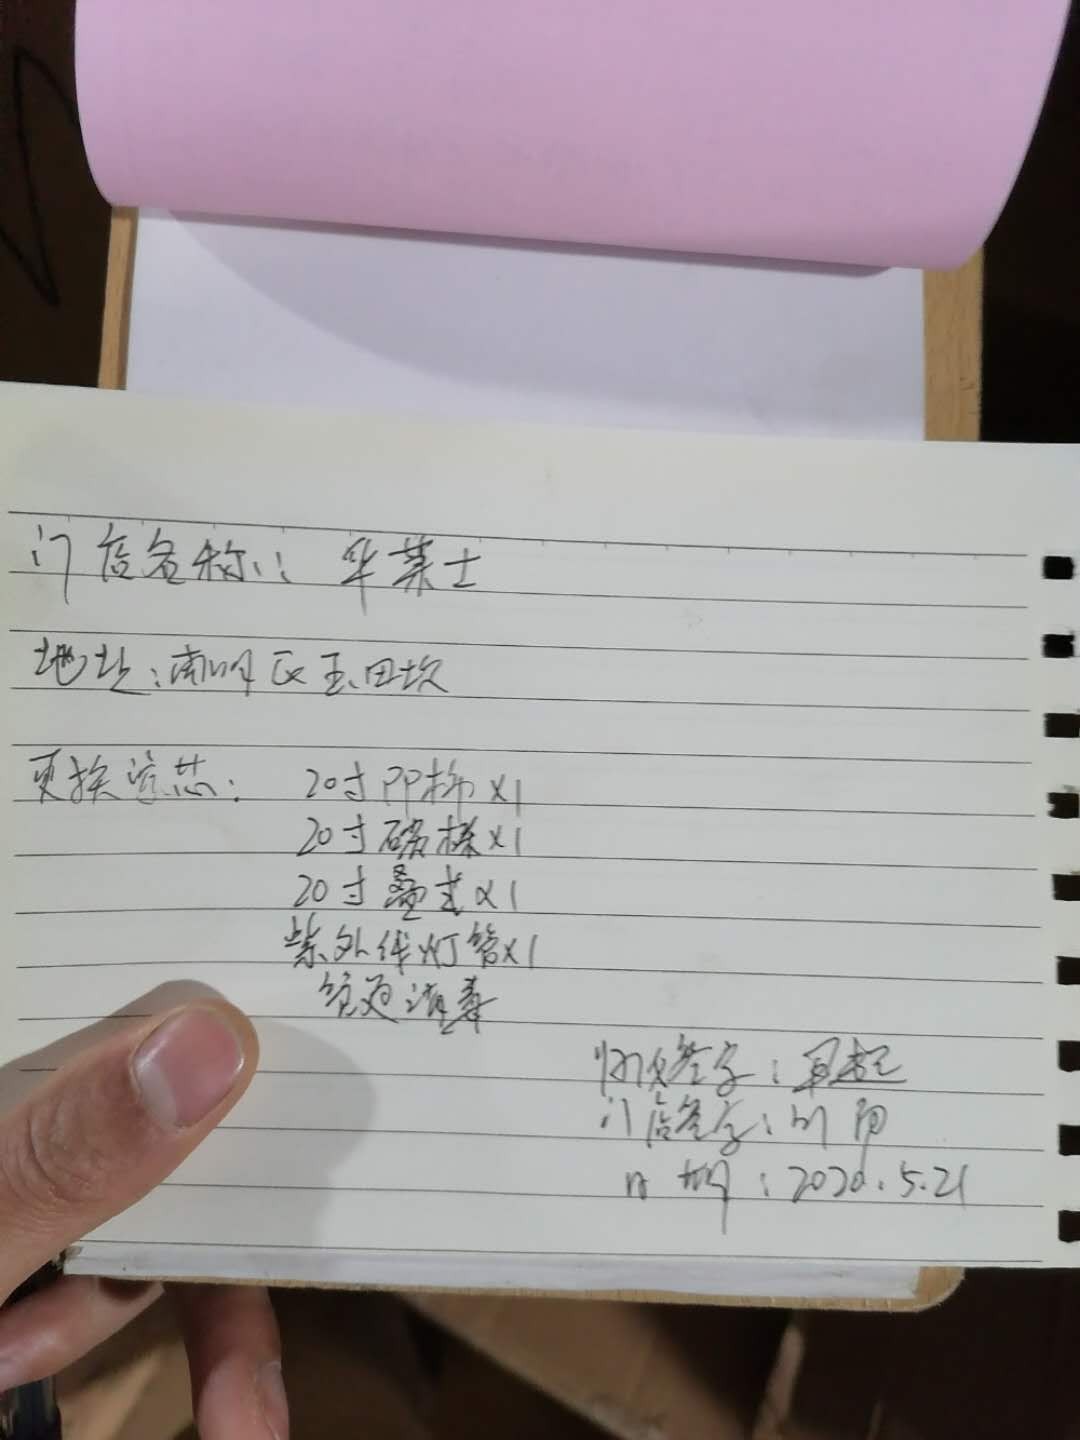 门店名称: 华莱士
地址:南明区玉田坝
更换滤芯: 20寸PP棉X1
20寸磷X1
20寸叠式X1
紫外线灯管X1
管道消毒
师父签字:
门店签字:
日期:2020.5.21